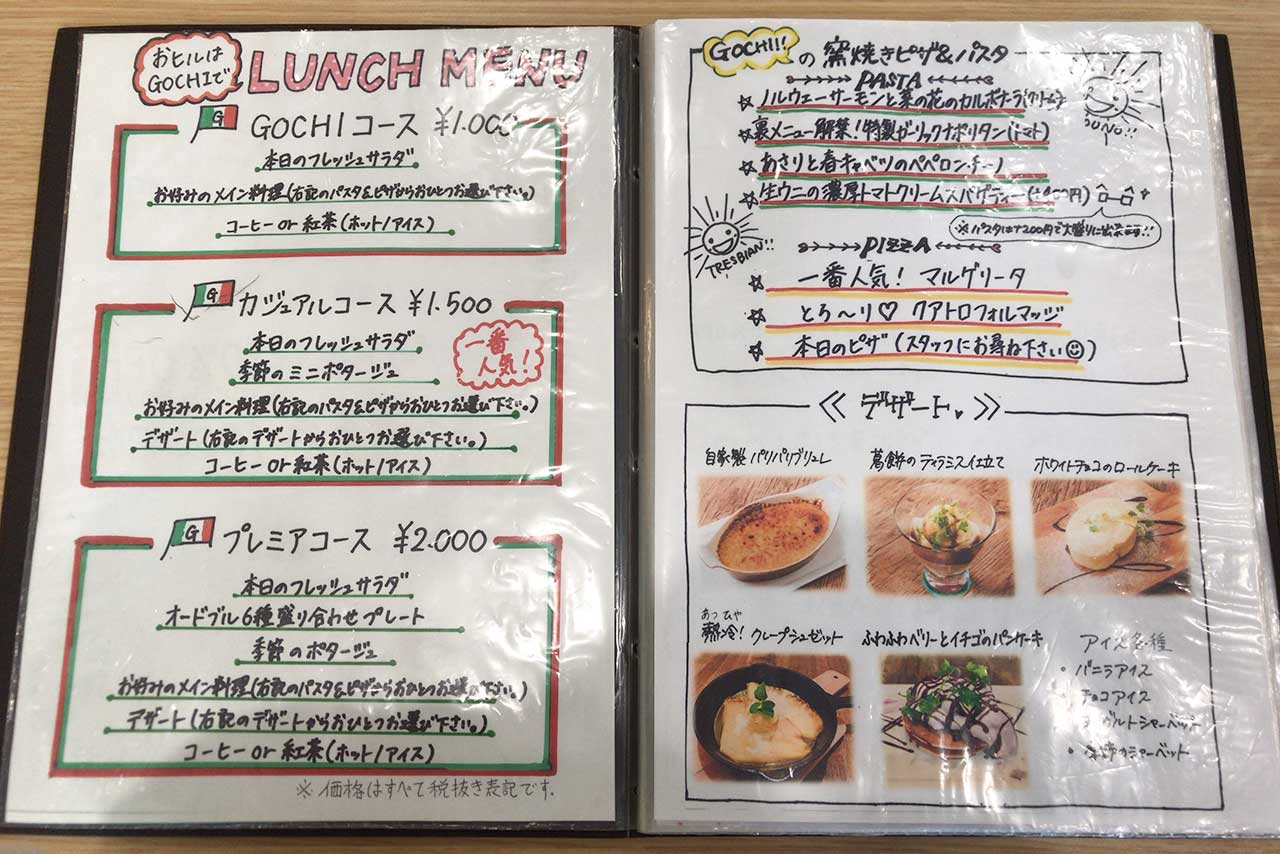 おヒルは
GOCHIで
LUNCH MENU
G
GOCHIコース ¥1.000
本日のフレッシュサラダ
お好みのメイン料理(右記のパスタ&ピザからおひとつお選び下さい。)
コーヒー or 紅茶(ホット/アイス)
G
カジュアルコース ¥1.500
一番
人気!
本日のフレッシュサラダ
季節のミニポタージュ
お好みのメイン料理(右記のパスタ&ピザからおひとつお選び下さい。)
デザート(右記のデザートからおひとつお選び下さい。)
コーヒー or 紅茶(ホット/アイス)
G
プレミアコース ¥2.000
本日のフレッシュサラダ
オードブル6種盛り合わせプレート
季節のポタージュ
お好みのメイン料理(右記のパスタ&ピザからおひとつお選び下さい。)
デザート(右記のデザートからおひとつお選び下さい。)
コーヒー or 紅茶(ホット/アイス)
※価格はすべて税抜き表記です.
GOCHI!!の窯焼きピザ&パスタ
PASTA
☆ノルウェーサーモンと菜の花のカルボナーラ(クリーム)
☆裏メニュー解禁!特製ガーリックナポリタン(トマト)
☆あさりと春キャベツのペペロンチーノ
☆生ウニの濃厚トマトクリームスパゲティー(+400円)
※パスタは+200円で大盛りに出来ます!!
BUNO!!
TRESBIAN!!
PIZZA
☆一番人気! マルゲリータ
☆とろ〜り♡ クアトロフォルマッジ
☆本日のピザ(スタッフにお尋ね下さい☺)
≪ デザート ≫
自家製 パリパリブリュレ
葛餅のティラミス仕立て
ホワイトチョコのロールケーキ
あつ ひや
熱冷! クレープシュゼット
ふわふわベリーとイチゴのパンケーキ
アイス各種
・バニラアイス
・チョコアイス
・ヨーグルトシャーベット
・季節のシャーベット